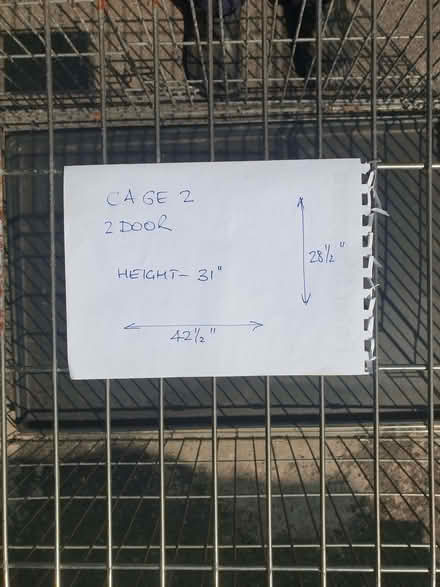 CAGE 2
2 DOOR
28 1/2"
HEIGHT - 31"
42 1/2"